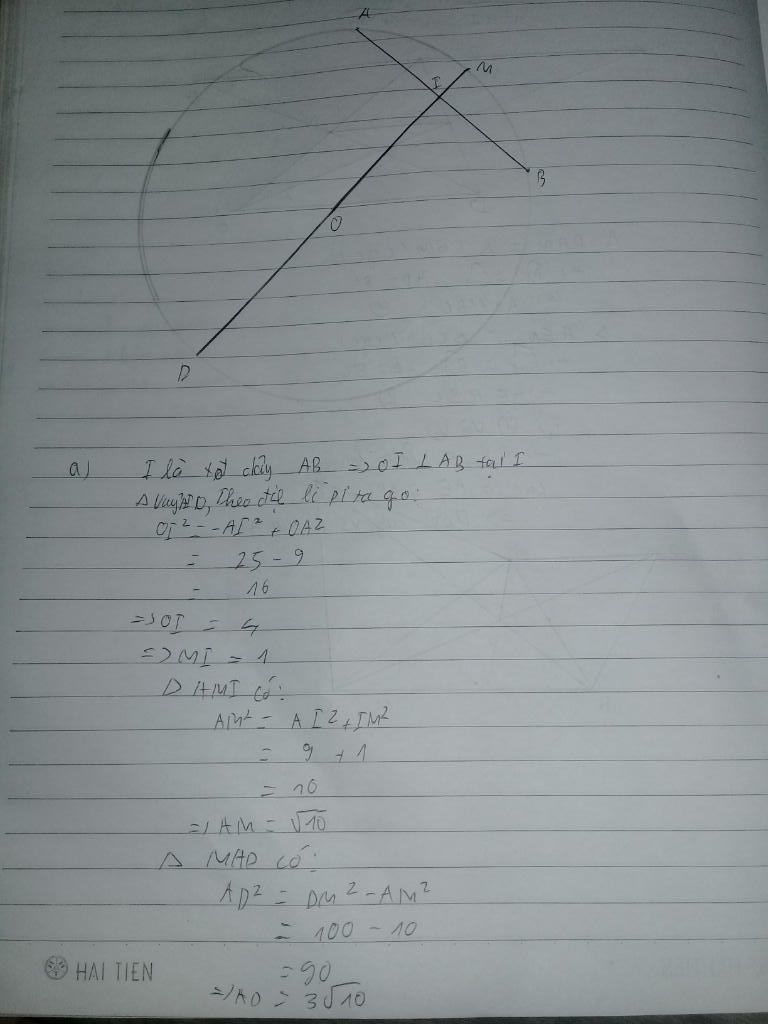 A
M
I
B
O
D
a) I là tđ dây AB => OI ⊥ AB tại I
Theo định lí pi ta go:
OI² = -AI² + OA2
= 25 - 9
= 16
=> OI = 4
=> MI = 1
Δ AMI có:
AM² = AI² + IM²
= 9 + 1
= 10
=> AM = √10
Δ MAD có:
AD² = DM² - AM²
= 100 - 10
= 90
=> AD = 3√10
HAI TIEN